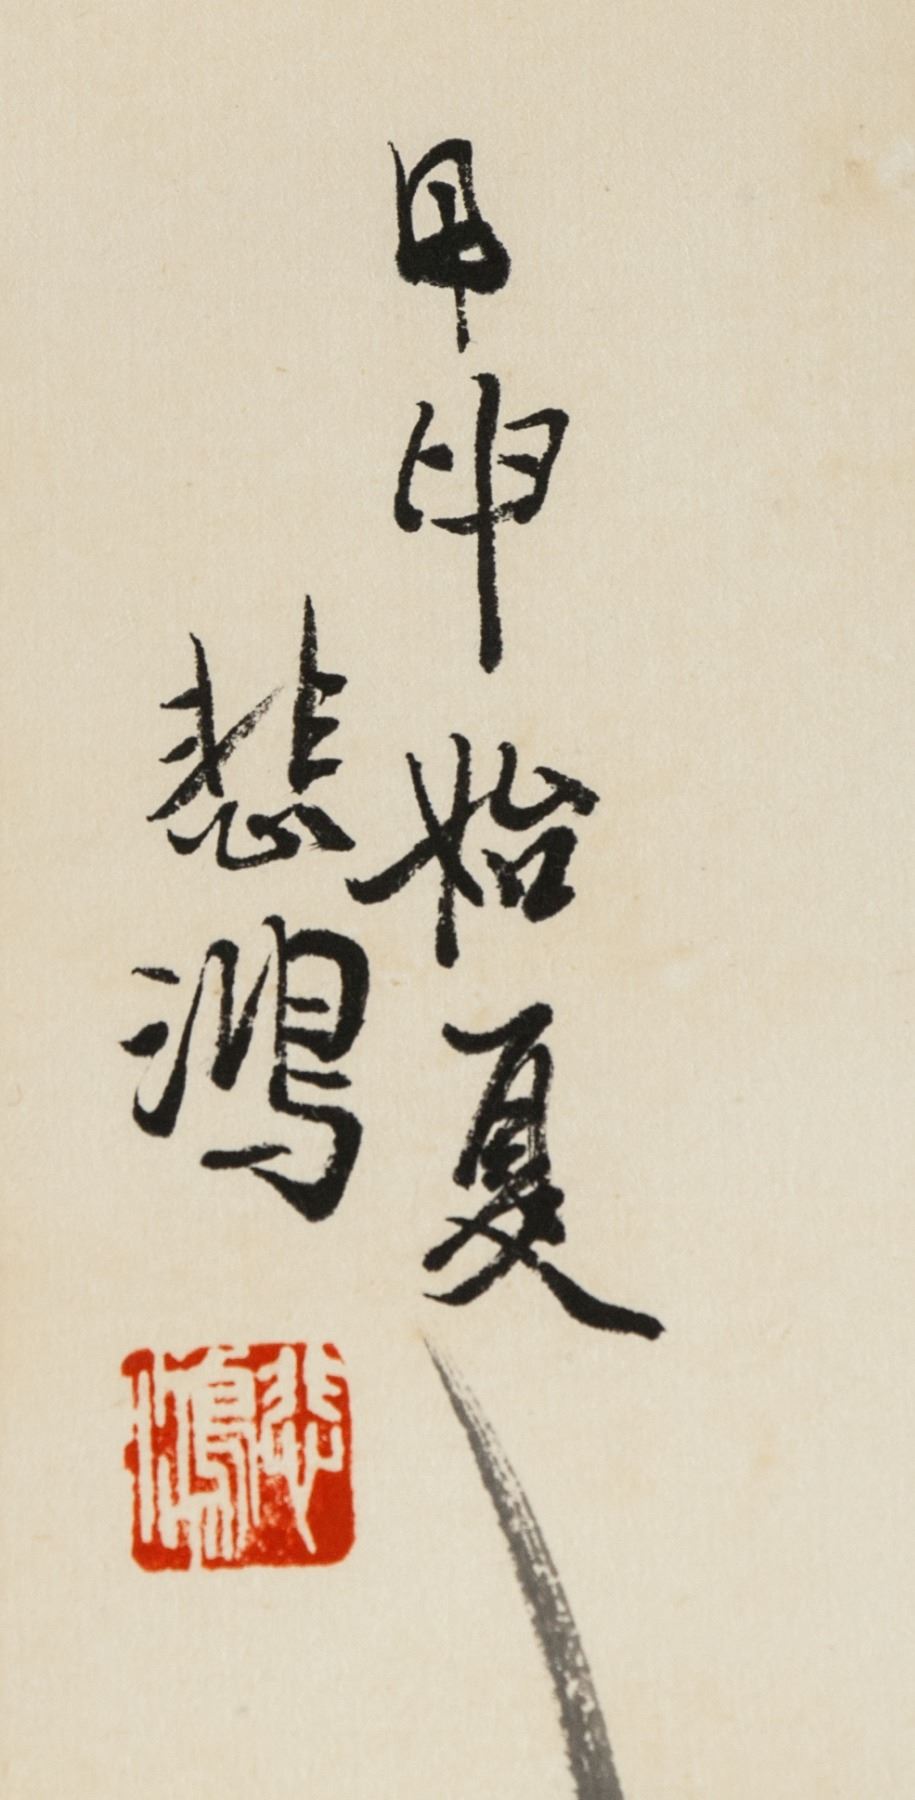 甲申始夏
悲鴻
悲鴻